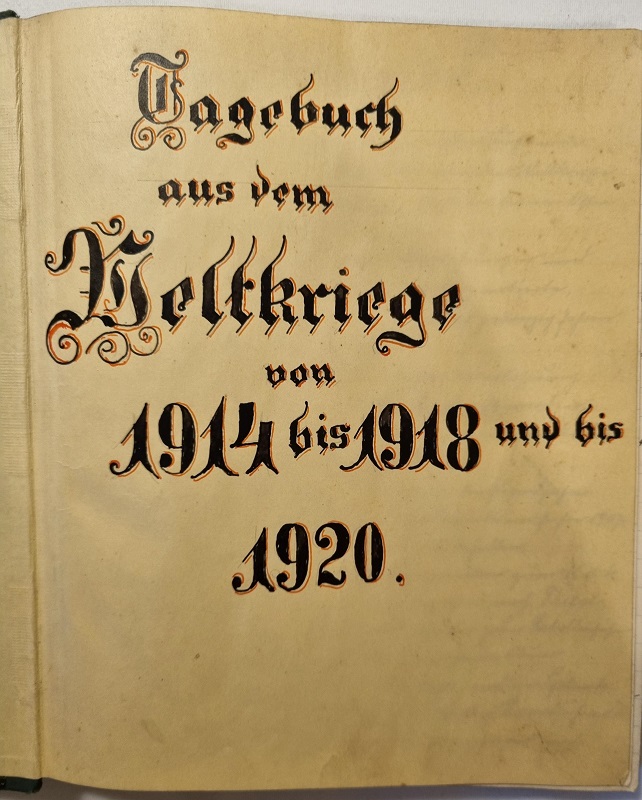 Tagebuch
aus dem
Weltkriege
von
1914 bis 1918 und bis
1920.